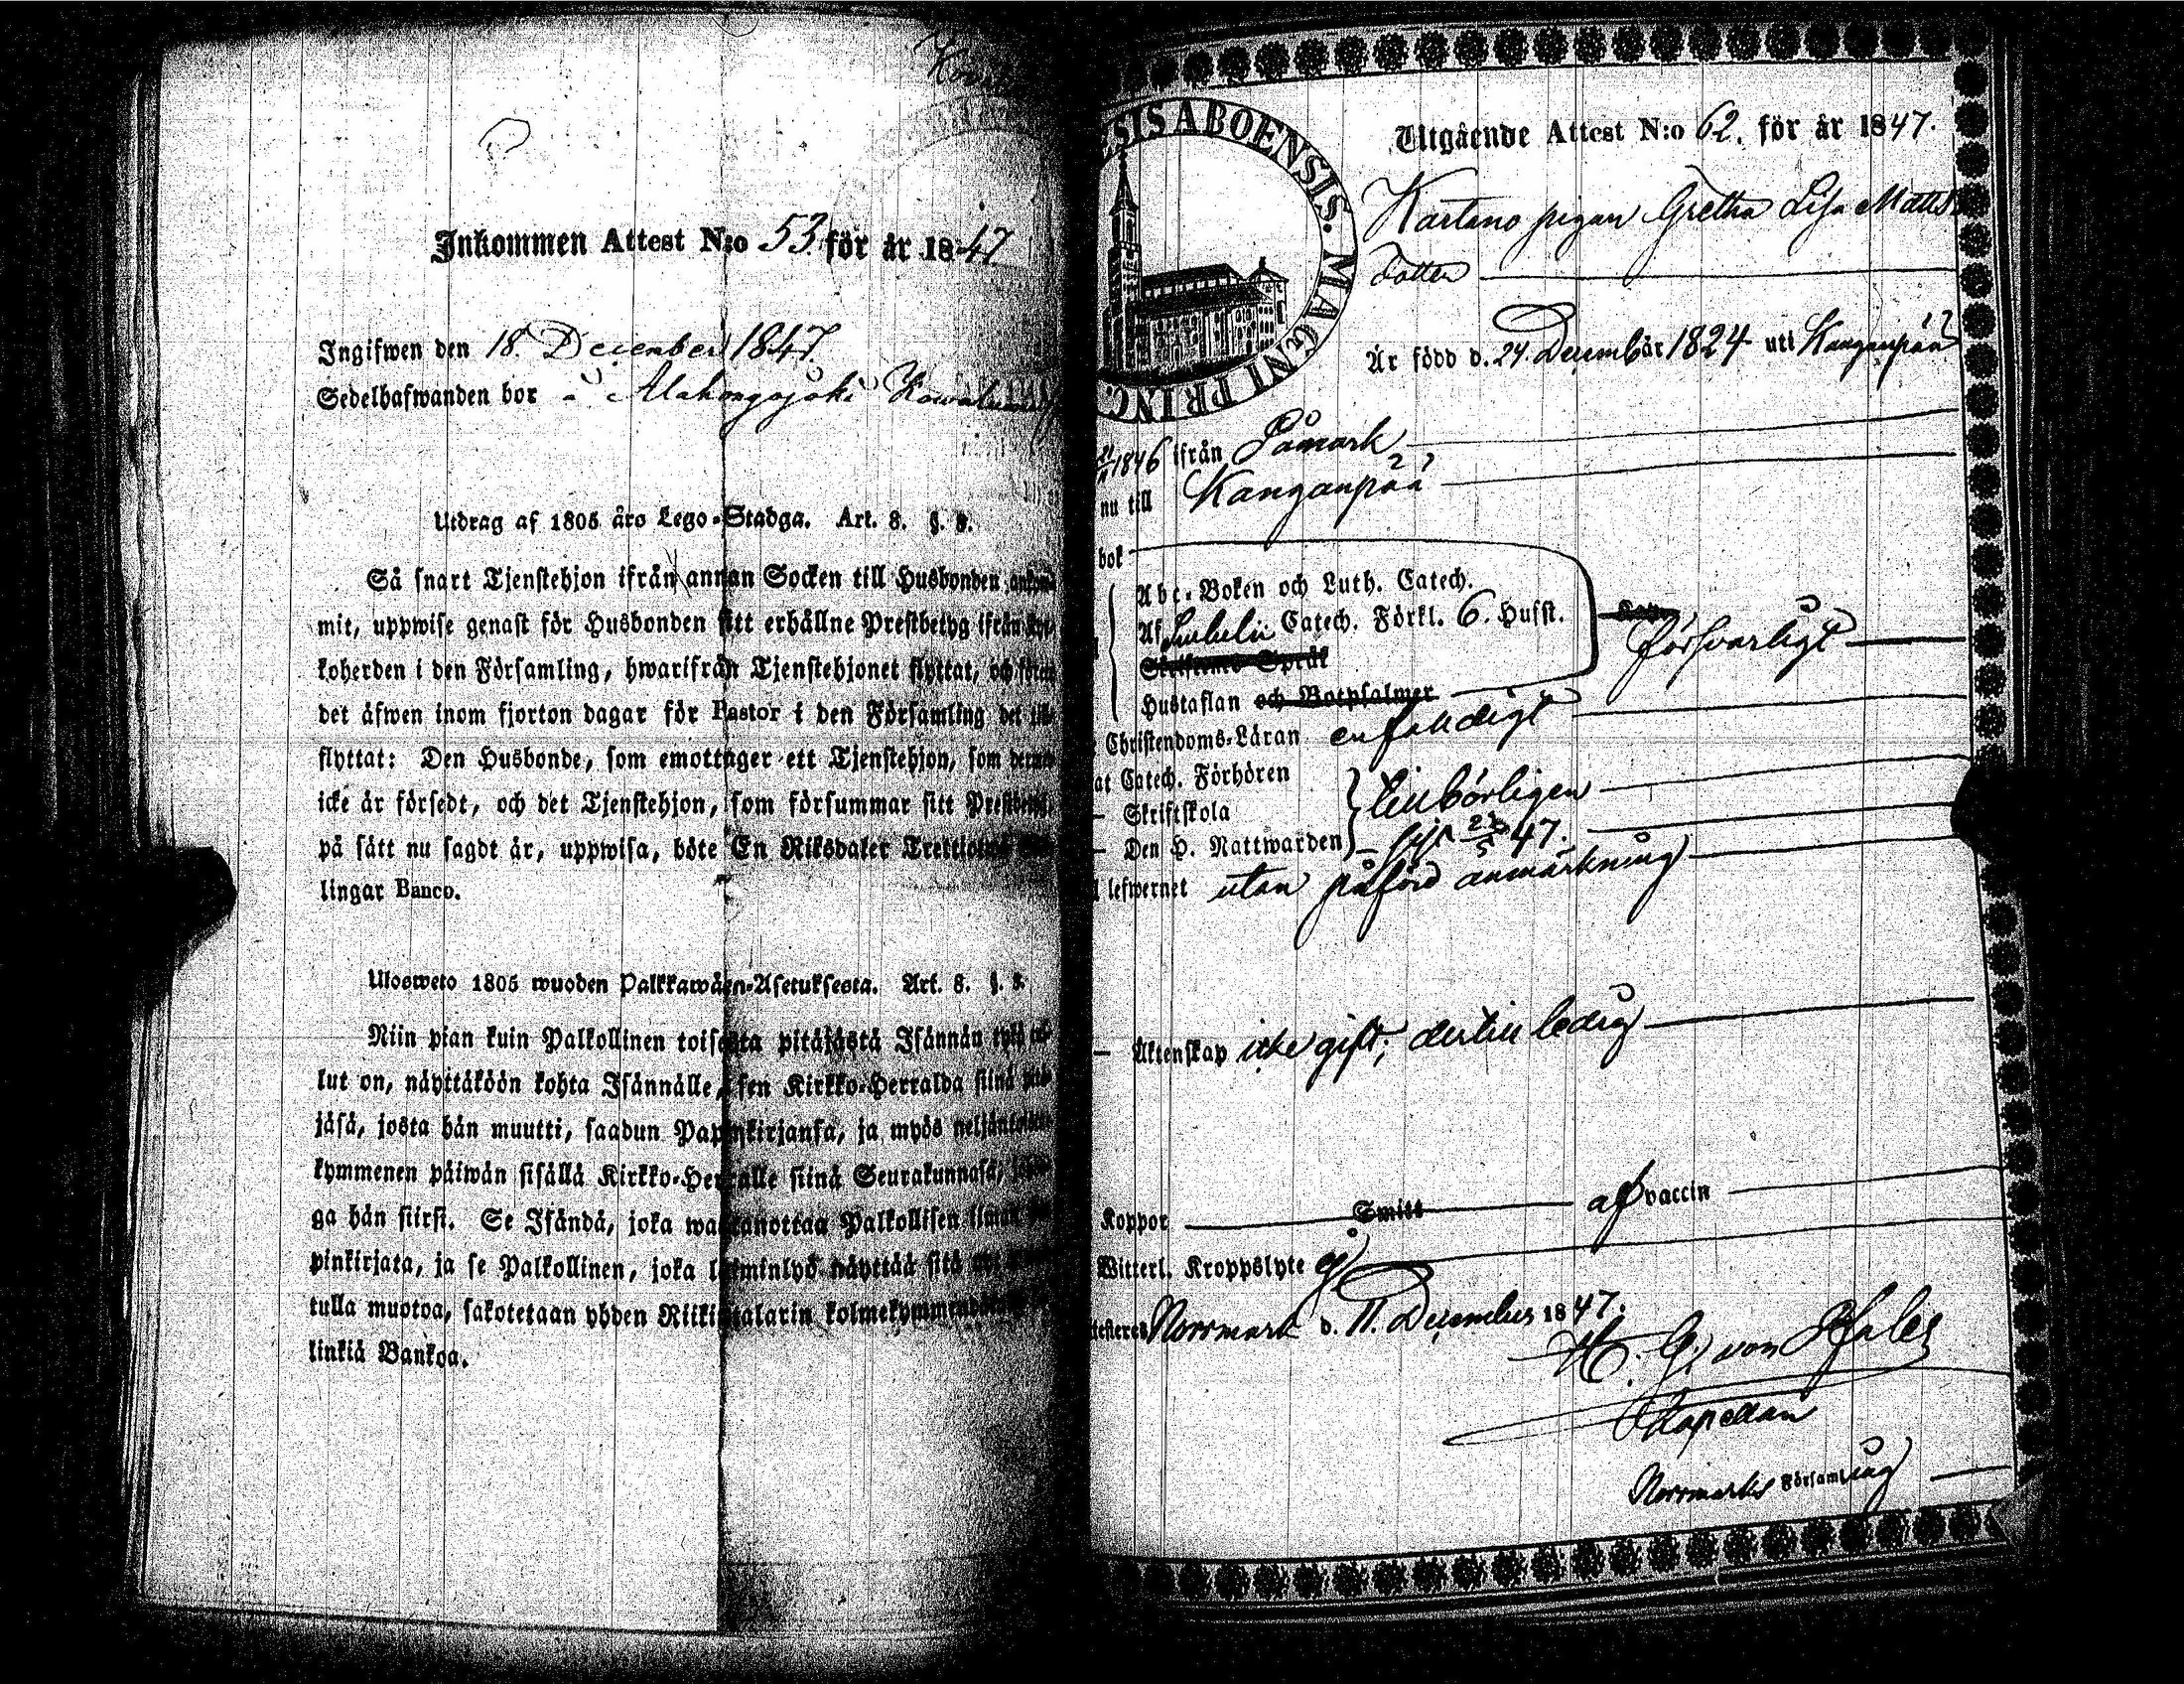 Inkommen Attest N:o 53. för år 1847.
Ingifwen den 18. December 1847.
Sedelhafwanden bor å Alahongojoki
Utdrag af 1805 års Lego-Stadga. Art. 8. §. 8.
Så snart Tjenstehjon ifrån annan Socken till Husbonden
mit, uppwise genast för Husbonden sitt erhållne Prestbetyg ifrån
koherden i den Församling, hwarifrån Tjenstehjonet flyttat, och
det äfwen inom fjorton dagar för Pastor i den Församling det
flyttat: Den Husbonde, som emottager ett Tjenstehjon, som
icke är försedt, och det Tjenstehjon, som försummar sitt
på sätt nu sagdt är, uppwisa, böte En Riksdaler
lingar Banco.
Ulosweto 1805 wuoden Palkkawäen-Asetuksesta. Art. 8. §. 8.
Niin pian kuin Palkollinen toisesta pitäjästä Isännän tykö
lut on, näyttäköön kohta Isännälle, sen Kirkko-Herralda siinä
jäsä, josta hän muutti, saadun Papinkirjansa, ja myös
kymmenen päiwän sisällä Kirkko-Herralle siinä Seurakunnasa,
ga hän siirsi. Se Isändä, joka wastanottaa Palkollisen ilman
pinkirjata, ja se Palkollinen, joka laiminlyö näyttää sitä
tulla muotoa, sakotetaan yhden Riikintalarin
linkiä Bankoa.
SIS ABOENSIS. MAGNI PRINC.
Utgående Attest N:o 62. för år 1847.
Kartano pigan Gretha Lisa Matts
Dotter
Är född d. 24. December 1824 uti Kanganpää
1846 ifrån Påmark
nu till Kanganpää
bok
Abc-Boken och Luth. Catech.
Af Catech. Förkl. 6. Husst.
försvarligt
Skriftens Språk
Hustaflan och Botpsalmer
Christendoms-Läran enfaldigt
at Catech. Förhören
– Skriftskola tillbörligen
– Den H. Nattwarden 47.
lefwernet utan påförd anmärkning
– Äktenskap icke gift; dertill ledig
Koppor Smitt af vaccin
Witterl. Kroppslyte ej
Norrmark d. 11. December 1847.
H. G. von Pfaler
Kapellan
Norrmarks Församling